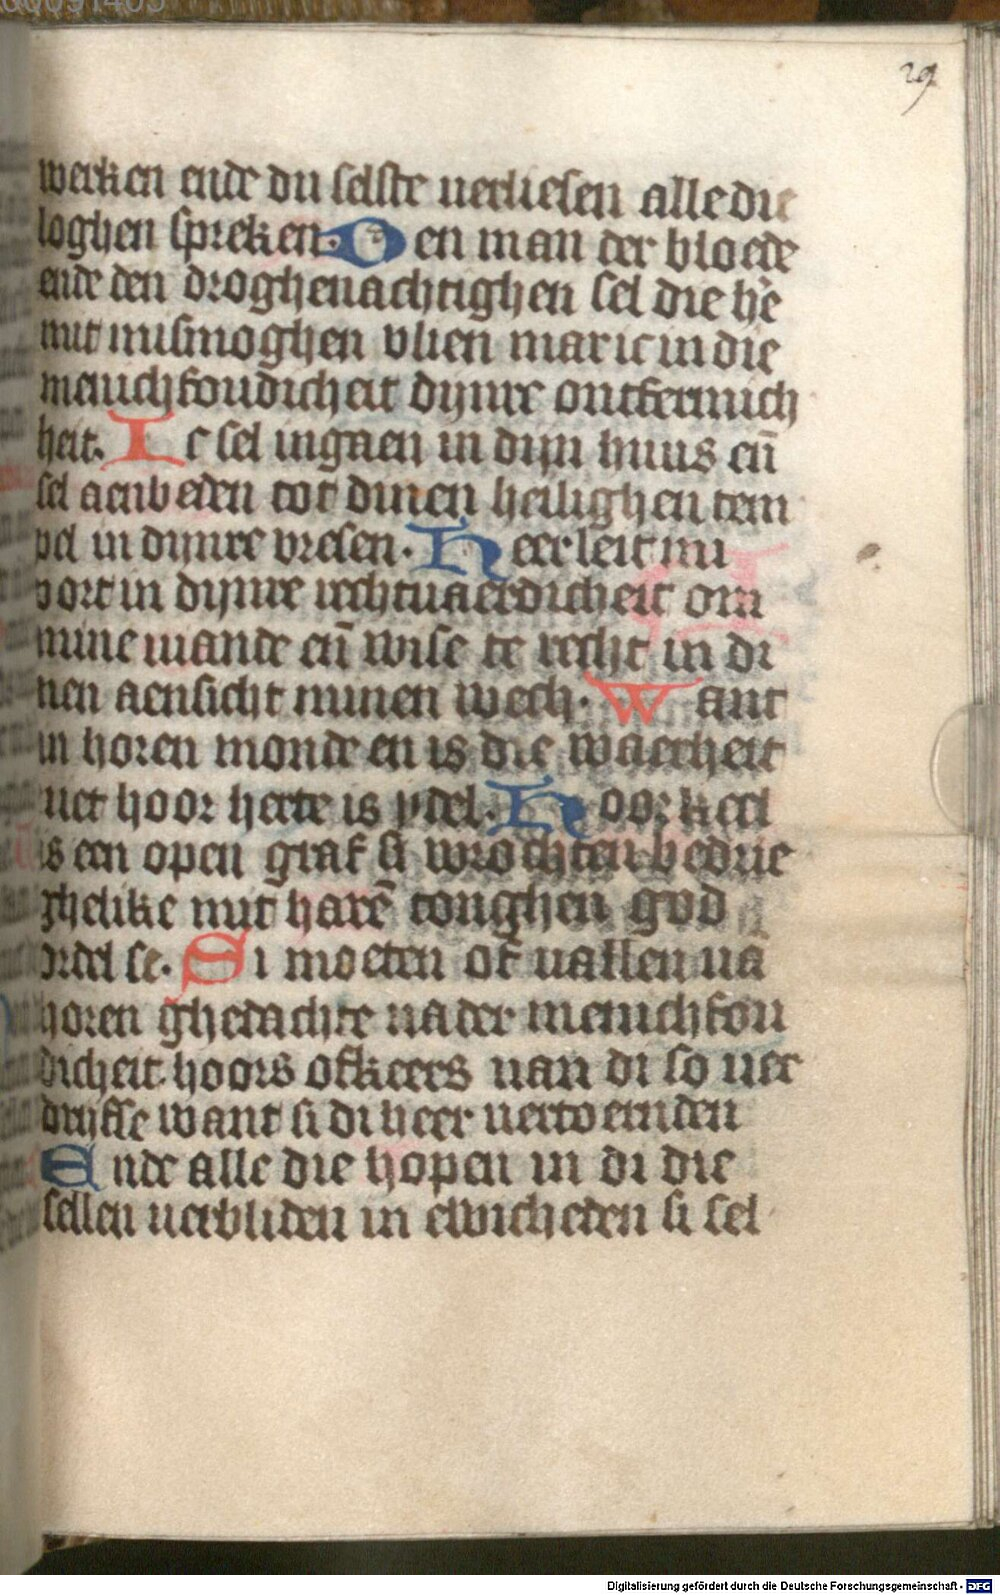 29
werken ende du selste verliesen alle die
loghen spreken. Den man der bloede
ende den droghenachtighen sel die hē
mit mismoghen vlien mar ic in die
menichfoudicheit dijnre ontfermich
heit. Ic sel ingaen in dijn huus en̄
sel aenbeden tot dinen heilighen tem
pel in dijnre vresen. Heer leit mi
voort in dijnre rechtuaerdicheit om
mine uiande en̄ wise te recht in di
nen aensicht minen wech. Want
in horen monde en is die waerheit
mer hoor herte is ydel. Hoor keel
is een open graf si wrochten bedrie
ghelike mit harē tonghen god
ordel se. Si moeten of uallen uā
horen ghedachte na der menichfou
dicheit hoors ofkeers uan di so uer
drijfse want si di heer uertoernden
Ende alle die hopen in di die
sellen uerbliden in ewicheden si sel
Digitalisierung gefördert durch die Deutsche Forschungsgemeinschaft - DFG